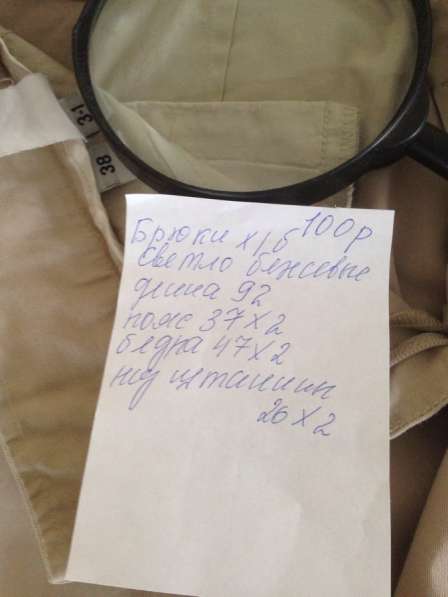 38 | 3-1
Брюки х/б 100р
светло бежевые
длина 92
пояс 37х2
бедра 47х2
низ штанин
26х2